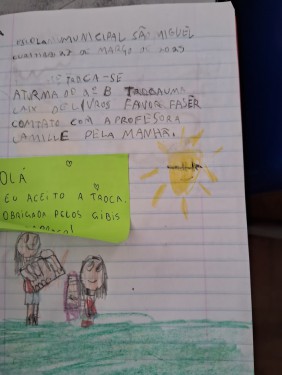 ESCOLA MUNICIPAL SÃO MIGUEL
DE MARÇO DE
TROCA-SE
A TURMA DO 2º B
DE LIVROS FAVOR FASER
COMTATO COM A PROFESORA
CAMILLE PELA MANHÃ.
OLÁ
EU ACEITO A TROCA.
OBRIGADA PELOS GIBIS